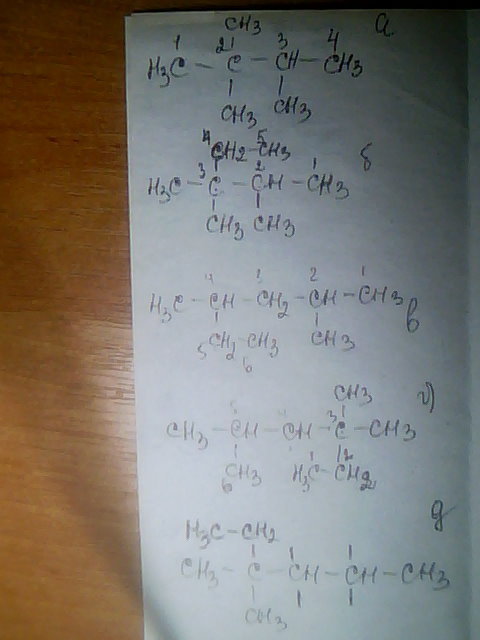 CH3 а
1 2 3 4
H3C - C - CH - CH3
CH3 CH3
4 CH2 - 5 CH3 б
3 2 1
H3C - C - CH - CH3
CH3 CH3
4 3 2 1
H3C - CH - CH2 - CH - CH3 в
5 CH2 - CH3 6 CH3
CH3 г)
5 4 3
CH3 - CH - CH - C - CH3
6 CH3 1 H3C - 2 CH2
д
H3C - CH2
CH3 - C - CH - CH - CH3
CH3